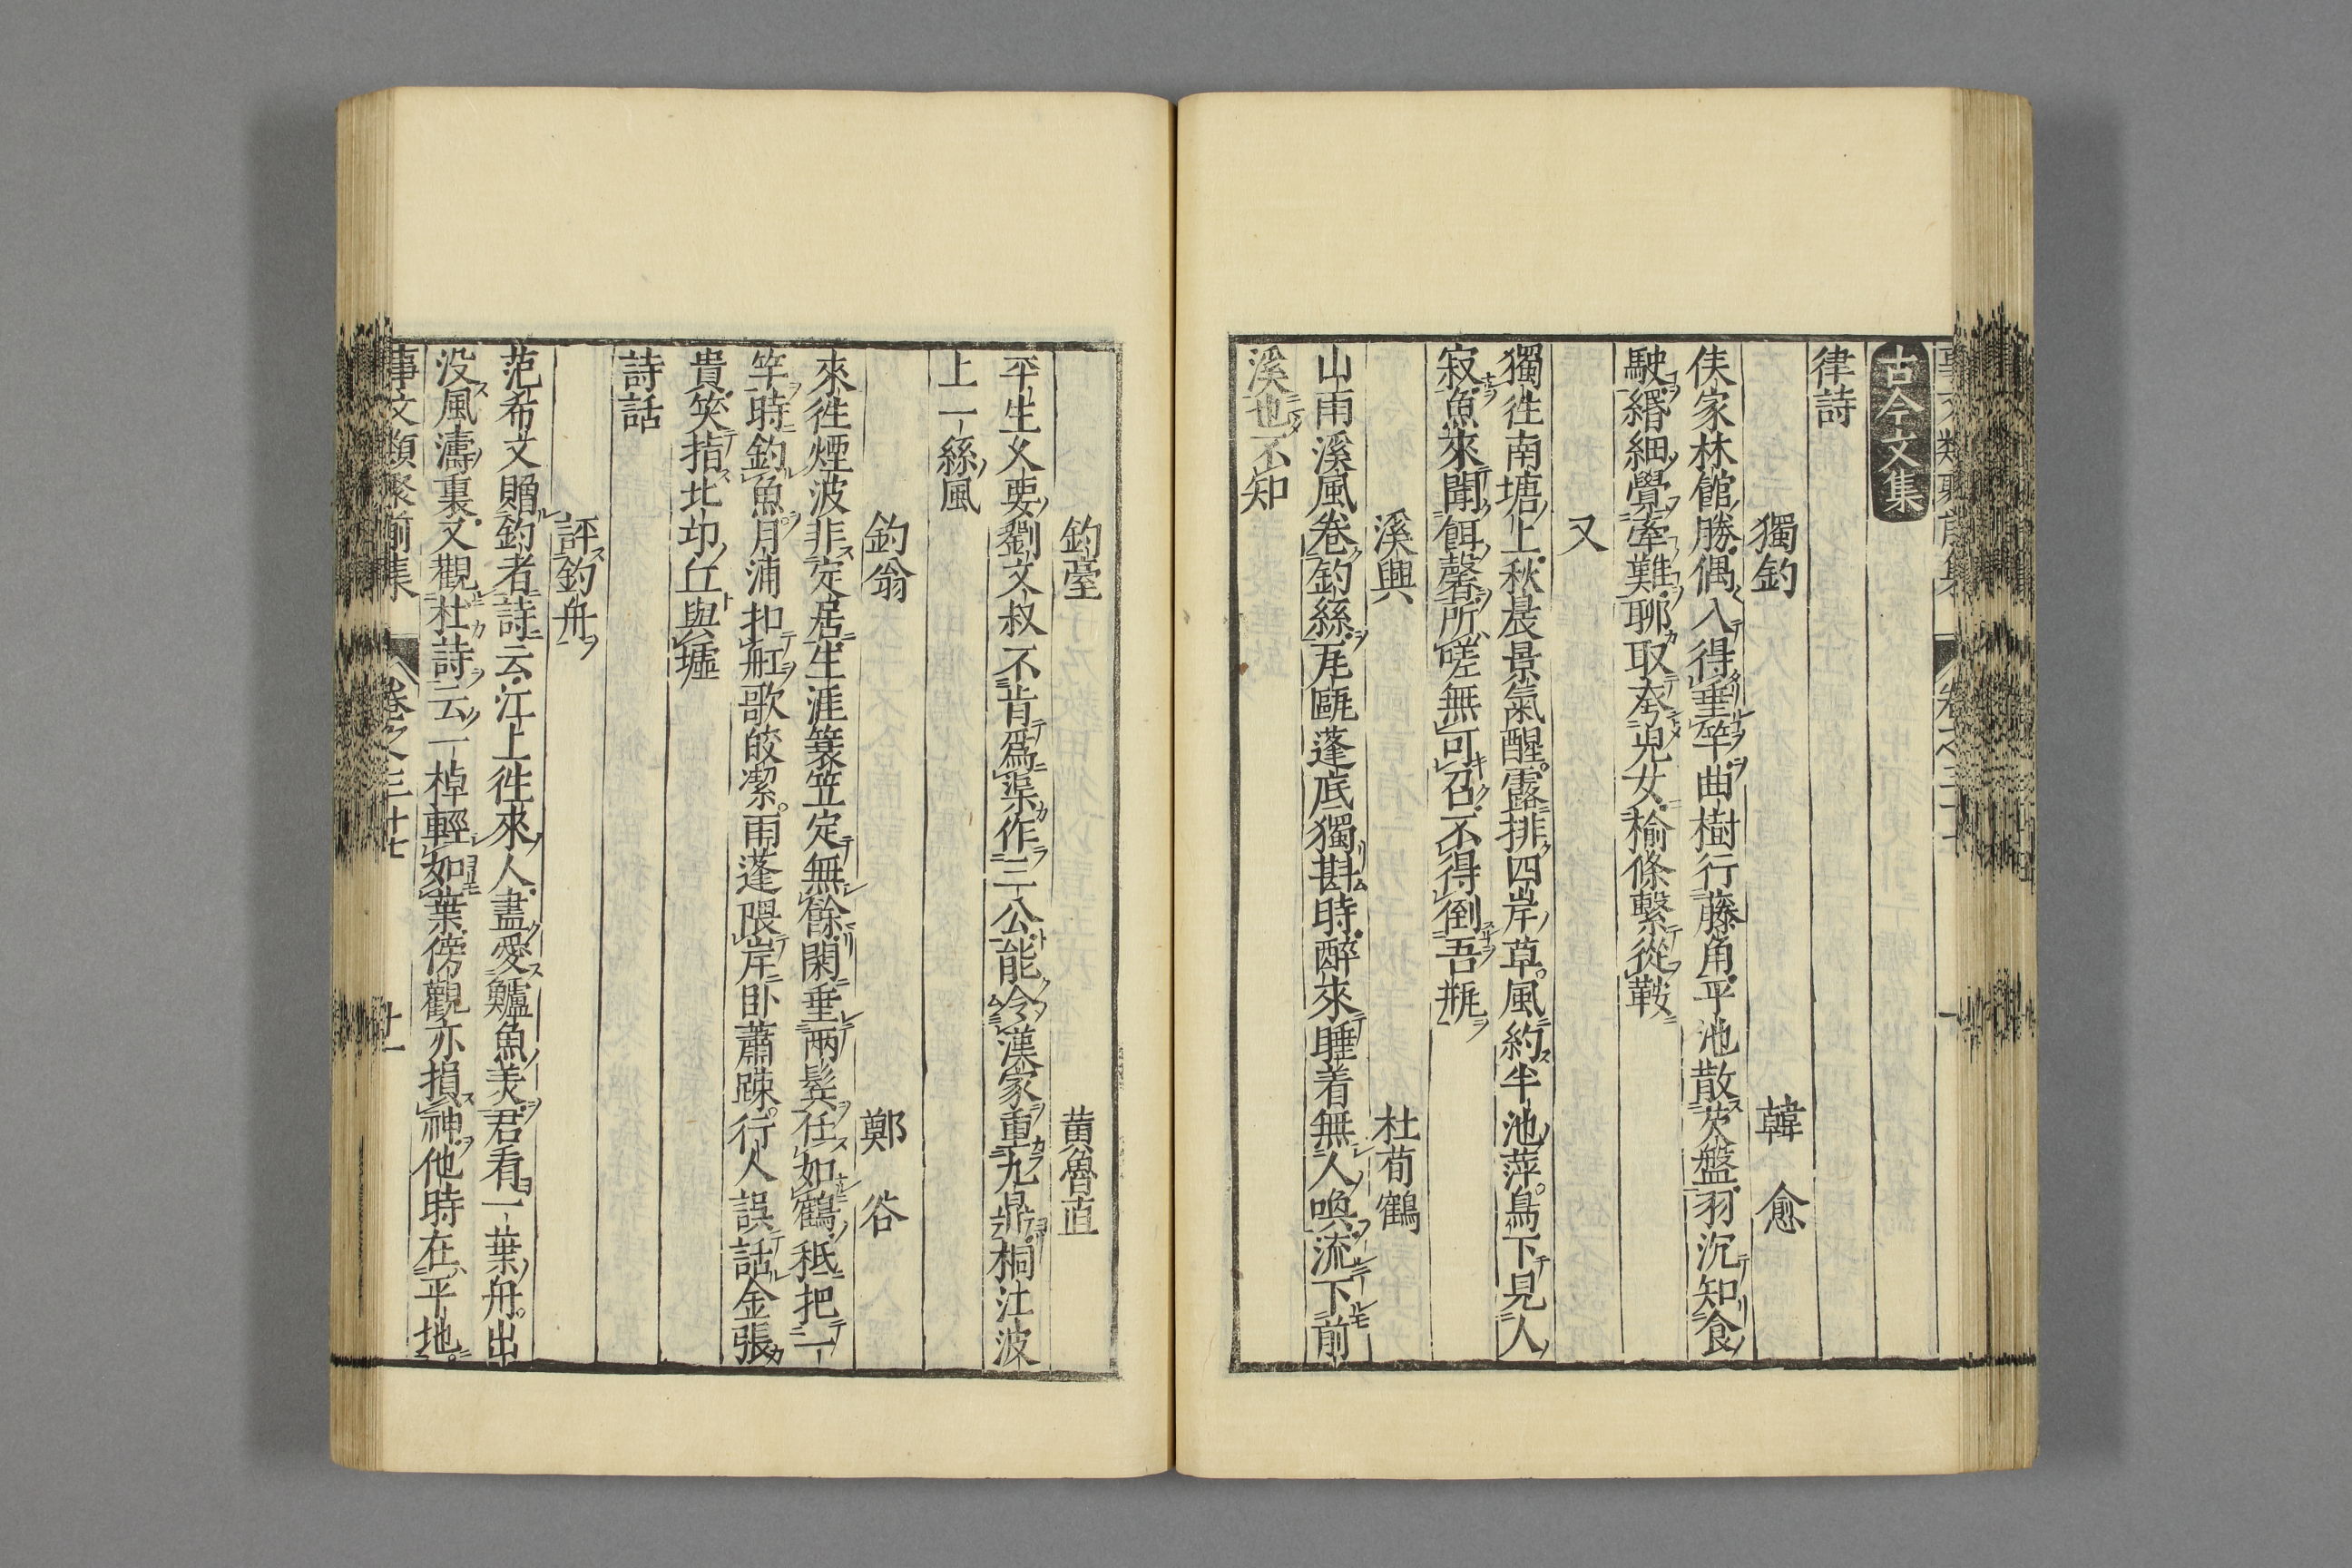 古今文集
律詩
獨釣　韓愈
侯家林館勝偶入得垂竿曲樹行藤角平池散芡盤羽沉知食
駛緡細覺牽難聊取夸兒女榆條繫從鞍
又
獨徃南塘上秋晨景氣醒露排四岸草風約半池萍鳥下見人
寂魚來聞餌馨所嗟無可召不得倒吾瓶
溪興　杜荀鶴
山雨溪風卷釣絲瓦甌蓬底獨斟時醉來睡着無人喚流下前
溪也不知
釣臺　黄魯直
平生乂要劉文叔不肯爲渠作三公能令漢家重九鼎桐江波
上一絲風
釣翁　鄭谷
來徃煙波非定居生涯蓑笠定無餘閑垂兩鬂任如鶴秖把一
竿時釣魚月浦扣舡歌皎潔雨蓬隈岸卧蕭踈行人誤話金張
貴笑指北邙丘與墟
詩話
評釣舟
范希文贈釣者詩云江上徃來人盡愛鱸魚羙君看一葉舟出
没風濤裏又觀杜詩云一棹輕如葉傍觀亦損神他時在平地
事文類聚前集　卷之三十七　廿一